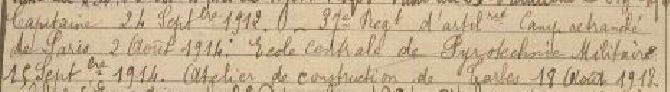 Capitaine 24 Sept bre 1912 O _ 37e Regt d'artil rie Camp retranché
de Paris 2 Août 1914. Ecole centrale de Pyrotechnie Militaire
15 Sept bre 1914. Atelier de construction de Tarbes 18 Août 1917.